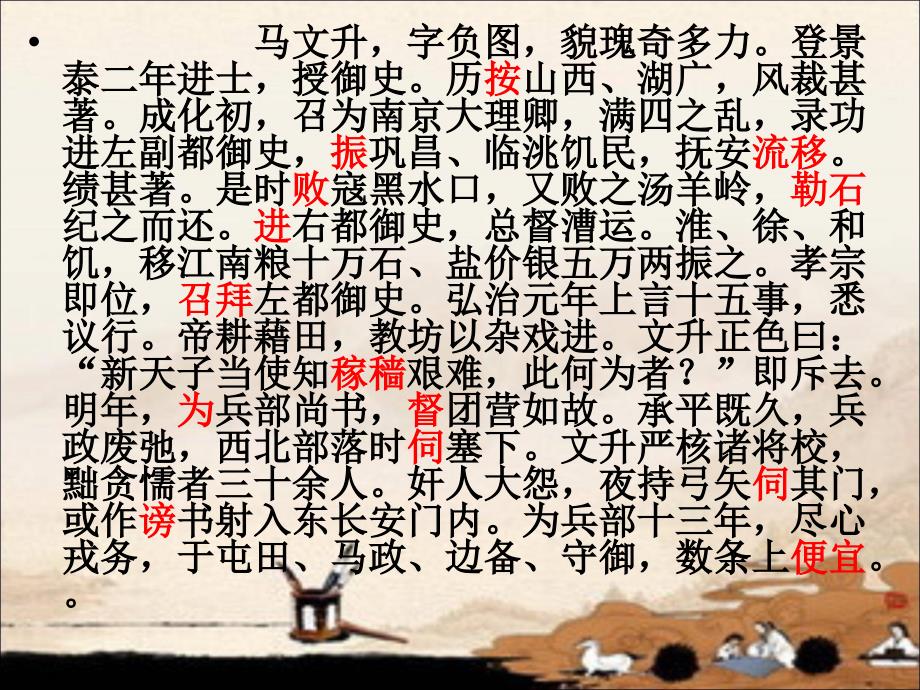 • 马文升，字负图，貌瑰奇多力。登景
泰二年进士，授御史。历按山西、湖广，风裁甚
著。成化初，召为南京大理卿，满四之乱，录功
进左副都御史，振巩昌、临洮饥民，抚安流移。
绩甚著。是时败寇黑水口，又败之汤羊岭，勒石
纪之而还。进右都御史，总督漕运。淮、徐、和
饥，移江南粮十万石、盐价银五万两振之。孝宗
即位，召拜左都御史。弘治元年上言十五事，悉
议行。帝耕藉田，教坊以杂戏进。文升正色曰：
“新天子当使知稼穑艰难，此何为者？”即斥去。
明年，为兵部尚书，督团营如故。承平既久，兵
政废弛，西北部落时伺塞下。文升严核诸将校，
黜贪懦者三十余人。奸人大怨，夜持弓矢伺其门，
或作谤书射入东长安门内。为兵部十三年，尽心
戎务，于屯田、马政、边备、守御，数条上便宜。
。